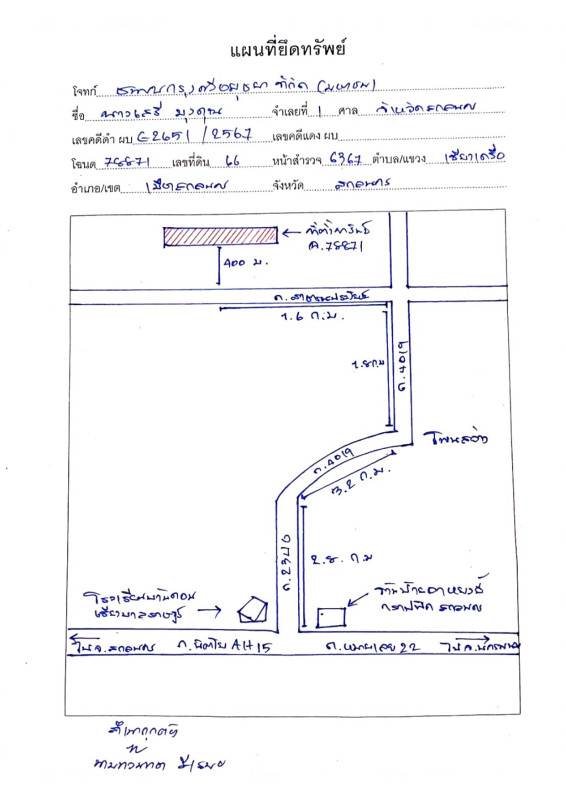 แผนที่ยึดทรัพย์
โจทก์ ธนาคารกรุงศรีอยุธยา จำกัด (มหาชน)
ชื่อ จำเลยที่ 1 ศาล จังหวัดสกลนคร
เลขคดีดำ ผบ E2651/2567 เลขคดีแดง ผบ
โฉนด 78871 เลขที่ดิน 66 หน้าสำรวจ 6367 ตำบล/แขวง เชียงเครือ
อำเภอ/เขต เมืองสกลนคร จังหวัด สกลนคร
ที่ตั้งทรัพย์
ฉ.78871
400 ม.
1.6 ก.ม.
1.8 ก.ม
ถ.4019
โพนสว่าง
ถ.4019
3.2 ก.ม.
2.8 ก.ม
โรงเรียนบ้านดอน
ร้านป้าย
กราฟฟิค สกลนคร
ไป จ.สกลนคร ถ.นิตโย AH15 ถ.หมายเลข 22 ไป จ.นครพนม
สำเนาถูกต้อง